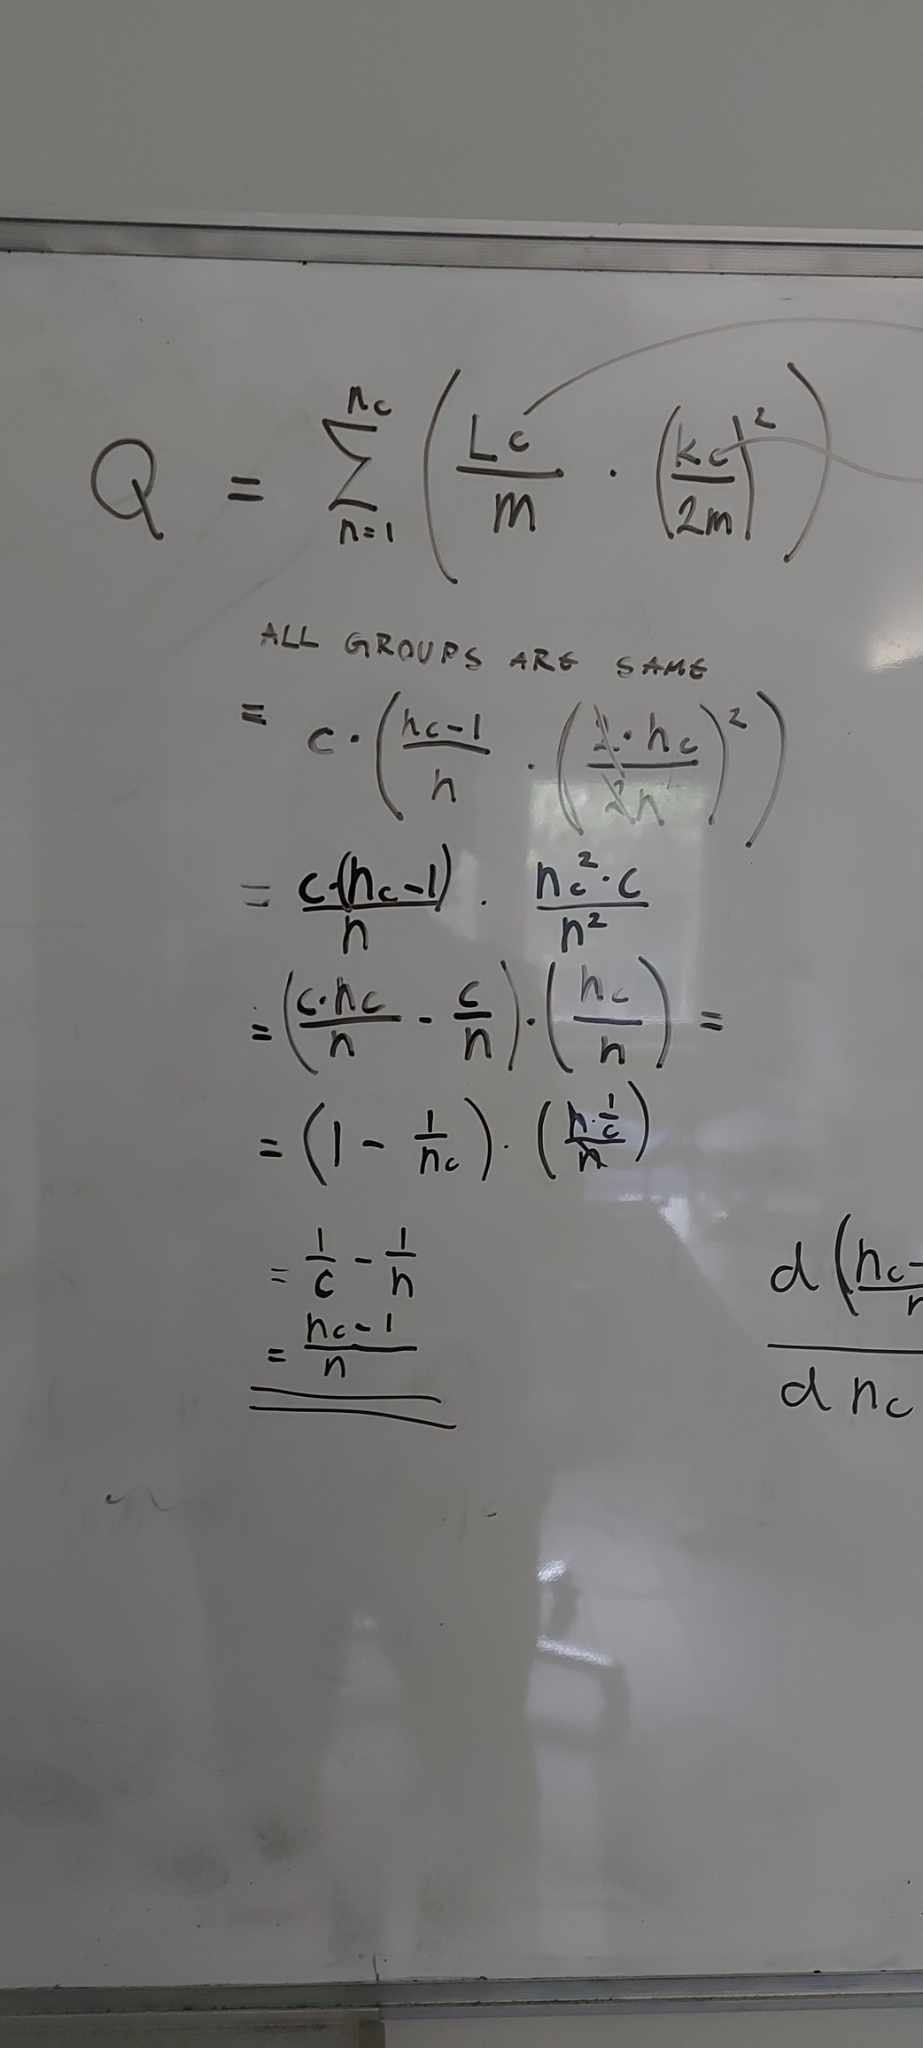 Q = \sum_{n=1}^{n_c} ( \frac{L_c}{m} \cdot (\frac{k_c}{2m})^2 )
ALL GROUPS ARE SAME
= c \cdot ( \frac{n_c - 1}{n} \cdot ( \frac{2 \cdot n_c}{2n} )^2 )
= \frac{c \cdot (n_c - 1)}{n} \cdot \frac{n_c^2 \cdot c}{n^2}
= ( \frac{c \cdot n_c}{n} - \frac{c}{n} ) \cdot ( \frac{n_c}{n} ) =
= ( 1 - \frac{1}{n_c} ) \cdot ( \frac{n \cdot \frac{1}{c}}{n} )
= \frac{1}{c} - \frac{1}{n}
= \frac{n_c - 1}{n}
d ( n_c -
d n_c